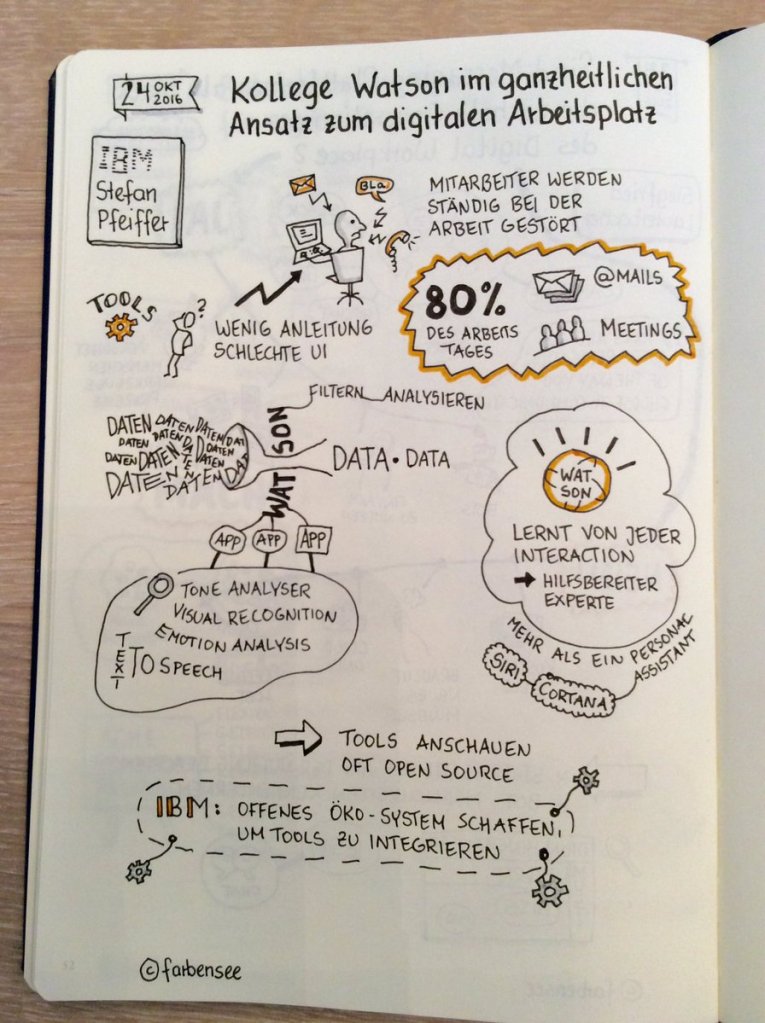 24 OKT
2016
Kollege Watson im ganzheitlichen
Ansatz zum digitalen Arbeitsplatz
IBM
Stefan
Pfeiffer
BLA
MITARBEITER WERDEN
STÄNDIG BEI DER
ARBEIT GESTÖRT
TOOLS
?
WENIG ANLEITUNG
SCHLECHTE UI
80%
DES ARBEITS
TAGES
@MAILS
MEETINGS
FILTERN ANALYSIEREN
WATSON
DATEN DATEN DATEN
DATEN DATEN DATEN DAT
DATEN DATEN DATEN DATEN
DATEN DATEN DAT
DATA • DATA
APP APP APP
TONE ANALYSER
VISUAL RECOGNITION
EMOTION ANALYSIS
TEXT TO SPEECH
WAT
SON
LERNT VON JEDER
INTERACTION
➡ HILFSBEREITER
EXPERTE
MEHR ALS EIN PERSONAL
ASSISTANT
SIRI
CORTANA
⇨ TOOLS ANSCHAUEN
OFT OPEN SOURCE
IBM: OFFENES ÖKO-SYSTEM SCHAFFEN,
UM TOOLS ZU INTEGRIEREN
52
© farbensee